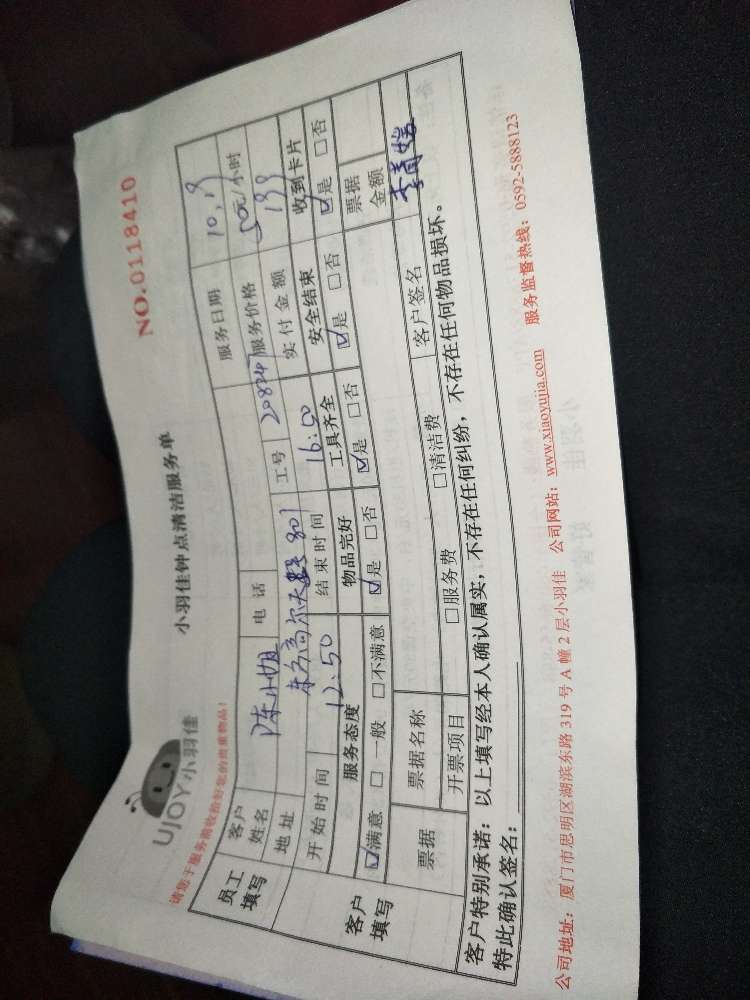 UJOY小羽佳
小羽佳钟点清洁服务单
NO.0118410
请您于服务前收拾好您的贵重物品!
员工填写 客户姓名 陈小姐 电话 服务日期 10.19
地址 东方高尔夫 801 工号 服务价格 50元/小时
开始时间 12:50 结束时间 16:50 实付金额 199
客户填写 服务态度 物品完好 工具齐全 安全结束 收到卡片
☑满意 □一般 □不满意 ☑是 □否 ☑是 □否 ☑是 □否 ☑是 □否
票据 票据名称 票据金额
开票项目 □服务费 □清洁费 客户签名
客户特别承诺:以上填写经本人确认属实,不存在任何纠纷,不存在任何物品损坏。
特此确认签名:
公司地址:厦门市思明区湖滨东路 319 号 A 幢 2 层小羽佳 公司网站:www.xiaoyujia.com 服务监督热线:0592-5888123